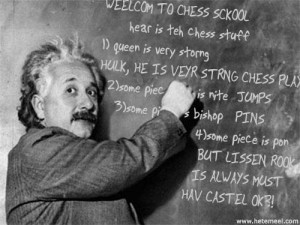 WEELCOM TO CHESS SCKOOL
hear is teh chess stuff
1) queen is very storng
HULK, HE IS VEYR STRNG CHESS PLA
2)some piec is nite JUMPS
3)some pi s bishop PINS
4)some piece is pon
BUT LISSEN ROOK
IS ALWAYS MUST
HAV CASTEL OK?!
www.hetemeel.com